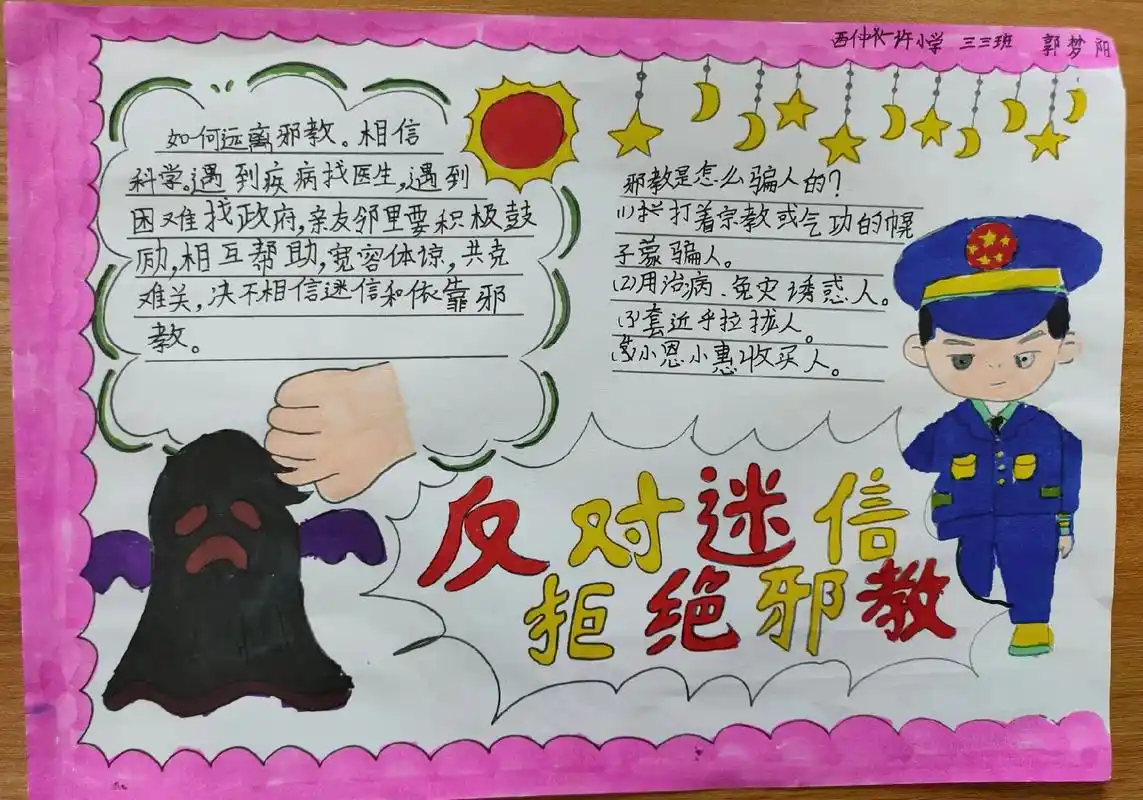 西仲长许小学 三三班 郭梦阳
如何远离邪教。相信
科学。遇到疾病找医生,遇到
困难找政府,亲友邻里要积极鼓
励,相互帮助,宽容体谅,共克
难关,决不相信迷信和依靠邪
教。
邪教是怎么骗人的?
(1)打着宗教或气功的幌
子蒙骗人。
(2)用治病、免灾诱惑人。
(3)套近乎拉拢人。
小恩小惠收买人。
反对迷信
拒绝邪教